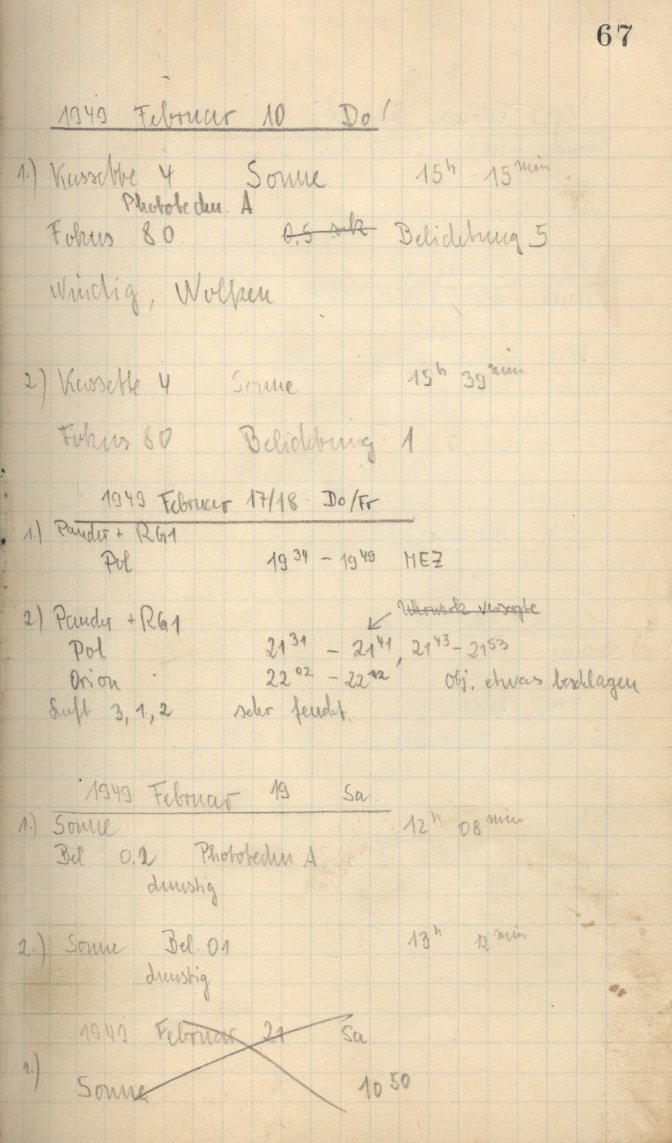 67
1949 Februar 10 Do
1.) Kassette 4 Sonne 15h 15min
Phototechn. A
Fokus 80 0,5 sek Belichtung 5
Windig, Wolken
2) Kassette 4 Sonne 15h 39min
Fokus 80 Belichtung 1
1949 Februar 17/18 Do/Fr
1.) Pander + RG1
Pol 19 34 - 19 49 MEZ
Uhrwerk versagte
2) Pander + RG1
Pol 21 31 - 21 41, 21 43 - 21 53
Orion 22 02 - 22 12 Obj. etwas beschlagen
Luft 3, 1, 2 sehr feucht
1949 Februar 19 Sa.
1.) Sonne 12h 08min
Bel 0.2 Phototechn A
dunstig
2.) Sonne Bel. 01 13h 12min
dunstig
1949 Februar 21 Sa
1.)
Sonne 10 50